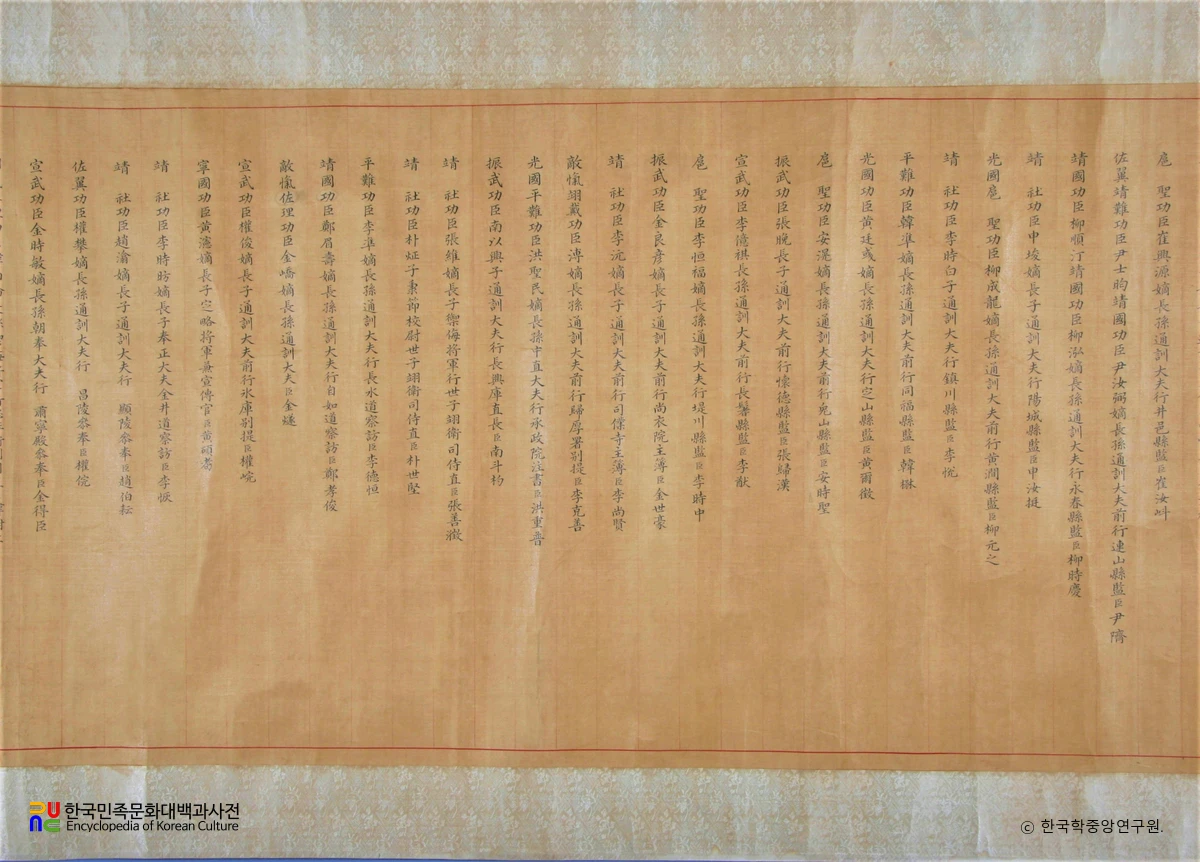 扈 聖功臣崔興源嫡長孫通訓大夫行井邑縣監臣崔汝
佐翼靖難功臣尹士昀靖國功臣尹汝弼嫡長孫通訓大夫前行連山縣監臣尹
靖國功臣柳順汀靖國功臣柳泓嫡長孫通訓大夫行永春縣監臣柳時慶
靖 社功臣申埈嫡長子通訓大夫行陽城縣監臣申汝挺
光國扈 聖功臣柳成龍嫡長孫通訓大夫前行黃澗縣監臣柳元之
靖 社功臣李時白子通訓大夫行鎮川縣監臣李恍
平難功臣韓準嫡長孫通訓大夫前行同福縣監臣韓
光國功臣黃廷彧嫡長孫通訓大夫行之山縣監臣黃爾徵
扈 聖功臣安滉嫡長孫通訓大夫前行兔山縣監臣安時聖
振武功臣張晚長子通訓大夫前行懷德縣監臣張歸漢
宣武功臣李億祺長孫通訓大夫前行長鬐縣監臣李猷
扈 聖功臣李恒福嫡長孫通訓大夫行堤川縣監臣李時中
振武功臣金良彥嫡長子通訓大夫前行尚衣院主簿臣金世豪
靖 社功臣李沅嫡長子通訓大夫前行司僕寺主簿臣李尚賢
敵愾翊戴功臣溥嫡長孫通訓大夫前行歸厚署別提臣李克善
光國平難功臣洪聖民嫡長孫中直大夫行承政院注書臣洪重普
振武功臣南以興子通訓大夫行長興庫直長臣南斗杓
靖 社功臣張維嫡長子禦侮將軍行世子翊衛司侍直臣張善澂
靖 社功臣朴炡子秉節校尉世子翊衛司侍直臣朴世堅
平難功臣李準嫡長孫通訓大夫行長水道察訪臣李德恒
靖國功臣鄭眉壽嫡長孫通訓大夫行自如道察訪臣鄭孝俊
敵愾佐理功臣金嶠嫡長孫通訓大夫臣金
宣武功臣權俊嫡長子通訓大夫前行氷庫別提臣權
寧國功臣黃瀗嫡長子定略將軍兼宣傳官臣黃
靖 社功臣李時昉嫡長子奉正大夫金井道察訪臣李恢
靖 社功臣趙潝嫡長子通訓大夫行 顯陵參奉臣趙伯耘
佐翼功臣權攀嫡長孫通訓大夫行 昌陵參奉臣權
宣武功臣金時敏嫡長孫朝奉大夫行 肅寧殿參奉臣金得臣
한국민족문화대백과사전
Encyclopedia of Korean Culture
© 한국학중앙연구원.